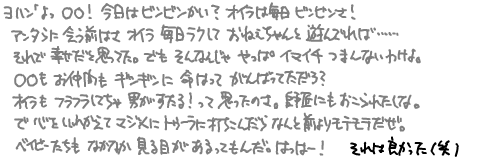 ヨハン「よっ、〇〇！今日はビンビンかい？オイラは毎日ビンビンさ！
アンタに会う前はさ オイラ 毎日ラクして おねえちゃんと遊んでいれば……
それで幸せだと思ってた。でも そんなんじゃ やっぱ イマイチ つまんないわけよ。
〇〇もお仲間も ギンギンに 命はって がんばってただろ？
オイラも フラフラしてちゃ 男がすたる！って思ったのさ。師匠にもおこられたしな。
で 心をいれかえて マジメにトゥーラに打ちこんだら なんと前よりモテモテだぜ。
ベイビーたちも なかなか 見る目が あるってもんだ。はっはー！ それは良かった(笑)